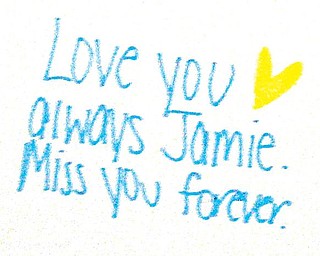 Love you
always Jamie.
Miss you forever.